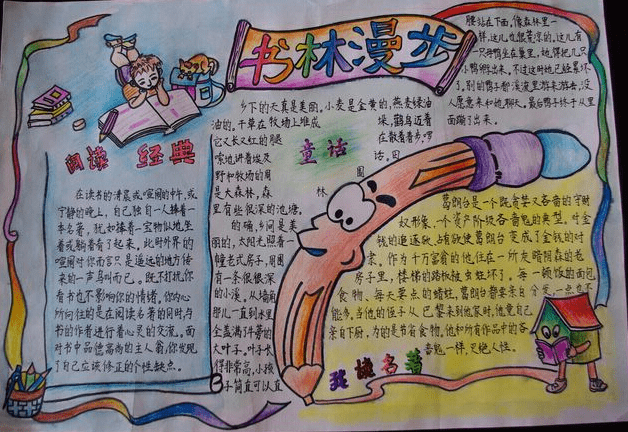 书林漫步
阅读 经典
在读书的清晨或喧闹的中午,或
宁静的晚上,自己独自一人捧着一
本名著,犹如捧着一宝物似地,坐
着或躺着看了起来,此时外界的
喧闹对你而言只是遥远的地方传
来的一声鸟叫而已。既不打扰你
看书也不影响你的情绪,你内心
所向往的是在阅读名著的同时与
书的作者进行着心灵的交流。面
对书中品德高尚的主人翁,你发现
了自己应该修正的个性缺点。
童话
乡下的天真是美丽。小麦是金黄的,燕麦绿油
油的。干草在牧场上堆成垛,鹳鸟迈着
它又长又红的腿在散着步,啰
嗦地讲着埃及话。田
野和牧场的周围
是大森林,森林
里有些很深的池塘。
的确,乡间是美
丽的,太阳光照着一
幢老式房子,周围
有一条很很深
的小溪。从墙角
那儿一直到水里
全盖满牛蒡的
大叶子。叶子长
得非常高,小孩
子简直可以直
腰站在下面,像森林里一
样,这儿也很荒凉的。这儿有
一只母鸭坐在巢里,她得把几只
小鸭孵出来。不过这时她已经累坏
了。别的鸭子都溪流里游来游去,没
人愿意来和她聊天。最后鸭子终于从里
面蹦了出来。
我读名著
葛朗台是一个既贪婪又吝啬的守财
奴形象,一个资产阶级吝啬鬼的典型。对金
钱的追逐欲,占有欲使葛朗台变成了金钱的对
象,作为千万富翁的他,住在一所灰暗阴森的老
房子里,楼梯的踏板被虫蛀坏了。每一顿饭的面包
食物,每天要点的蜡烛,葛朗台都要亲自分发一点也不
能多,当他的侄子从巴黎来到他家时,他竟自己
亲自下厨,为的是节省食物。他和所有作品中的吝
啬鬼一样,灭绝人性。